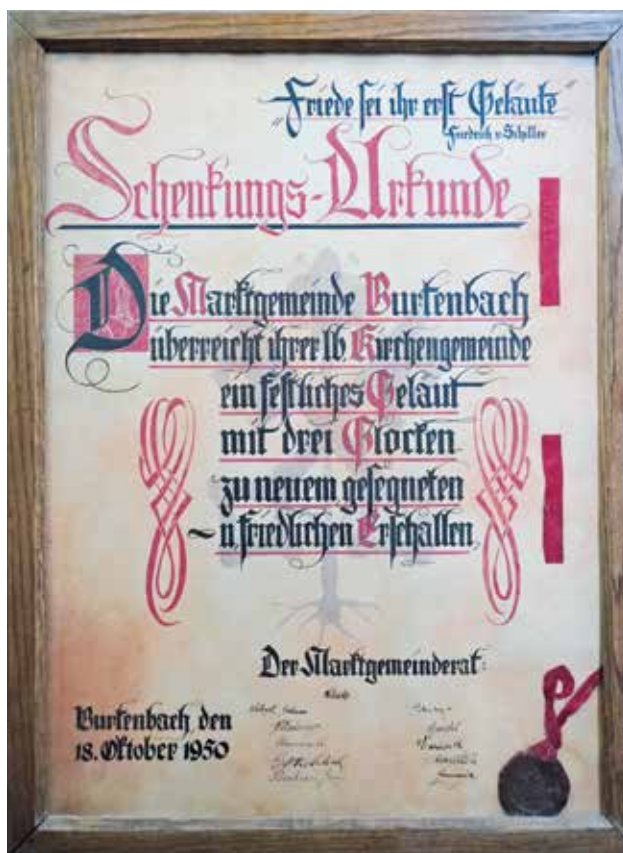 „Friede sei ihr erst Geläute“
Friedrich v. Schiller
Schenkungs-Urkunde
Die Marktgemeinde Burtenbach
überreicht ihrer lb. Kirchengemeinde
ein festliches Geläut
mit drei Glocken
zu neuem gesegneten
~ u. friedlichen Erschallen.
Der Marktgemeinderat:
Burtenbach, den
18. Oktober 1950